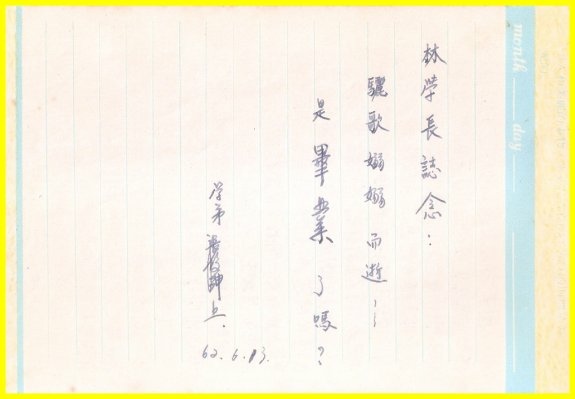 林學長誌念：
驪歌嫋嫋而逝！！
是畢業了嗎？
学弟
上.
62. 6. 13.
month day